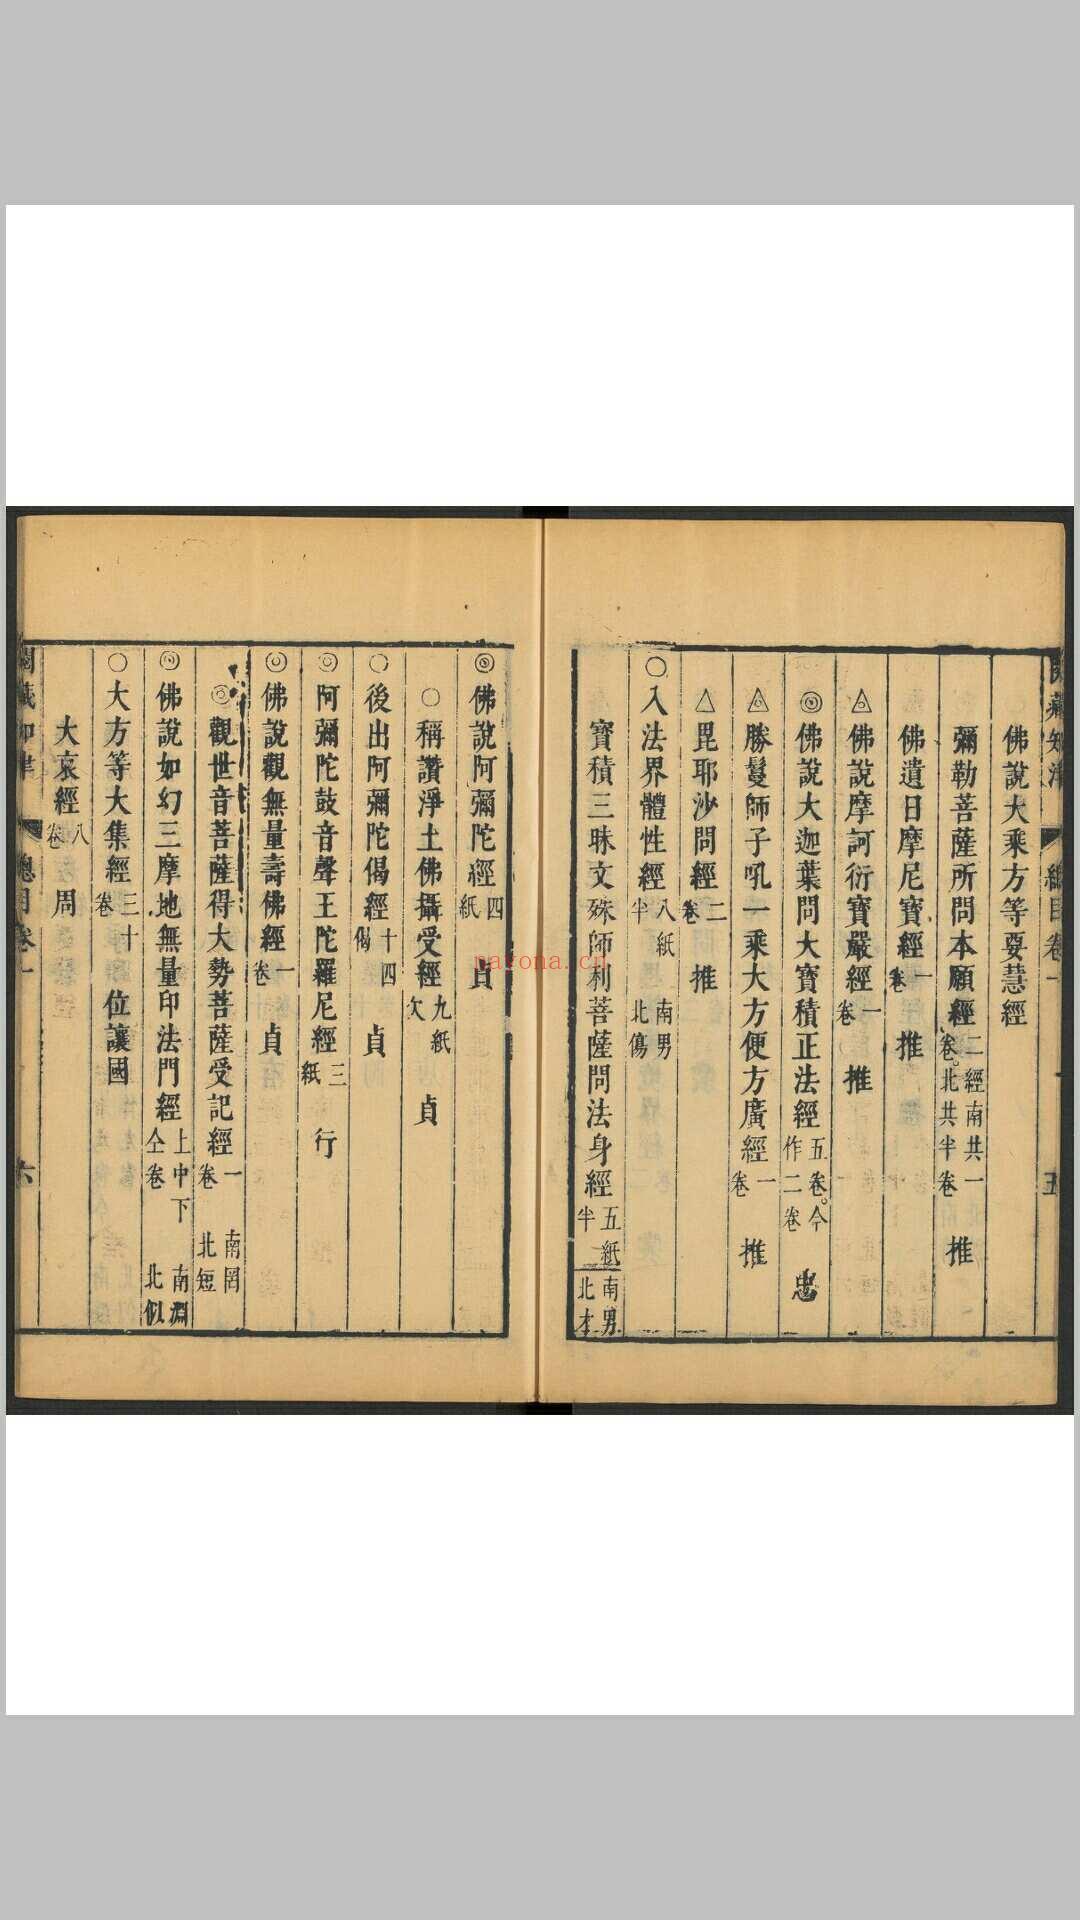 閱藏知津 總目卷一 五
佛說大乘方等要慧經
彌勒菩薩所問本願經 二經南共一卷。北共半卷 推
佛遺日摩尼寶經 一卷 推
佛說摩訶衍寶嚴經 一卷 推
◎佛說大迦葉問大寶積正法經 五卷。今作二卷 忠
勝鬘師子吼一乘大方便方廣經 一卷 推
△毘耶沙問經 二卷 推
○入法界體性經 八紙半 南男北傷
寶積三昧文殊師利菩薩問法身經 五紙半 南男北才
◎佛說阿彌陀經 四紙 貞
○稱讚淨土佛攝受經 九紙欠 貞
○後出阿彌陀偈經 十四偈 貞
◎阿彌陀鼓音聲王陀羅尼經 三紙 行
◎佛說觀無量壽佛經 一卷 貞
◎觀世音菩薩得大勢菩薩受記經 一卷 南罔北短
◎佛說如幻三摩地無量印法門經 上中下仝卷 南淵北似
○大方等大集經 三十卷 位讓國
大哀經 八卷 周
閱藏知津 總目卷一 六
navona.cn